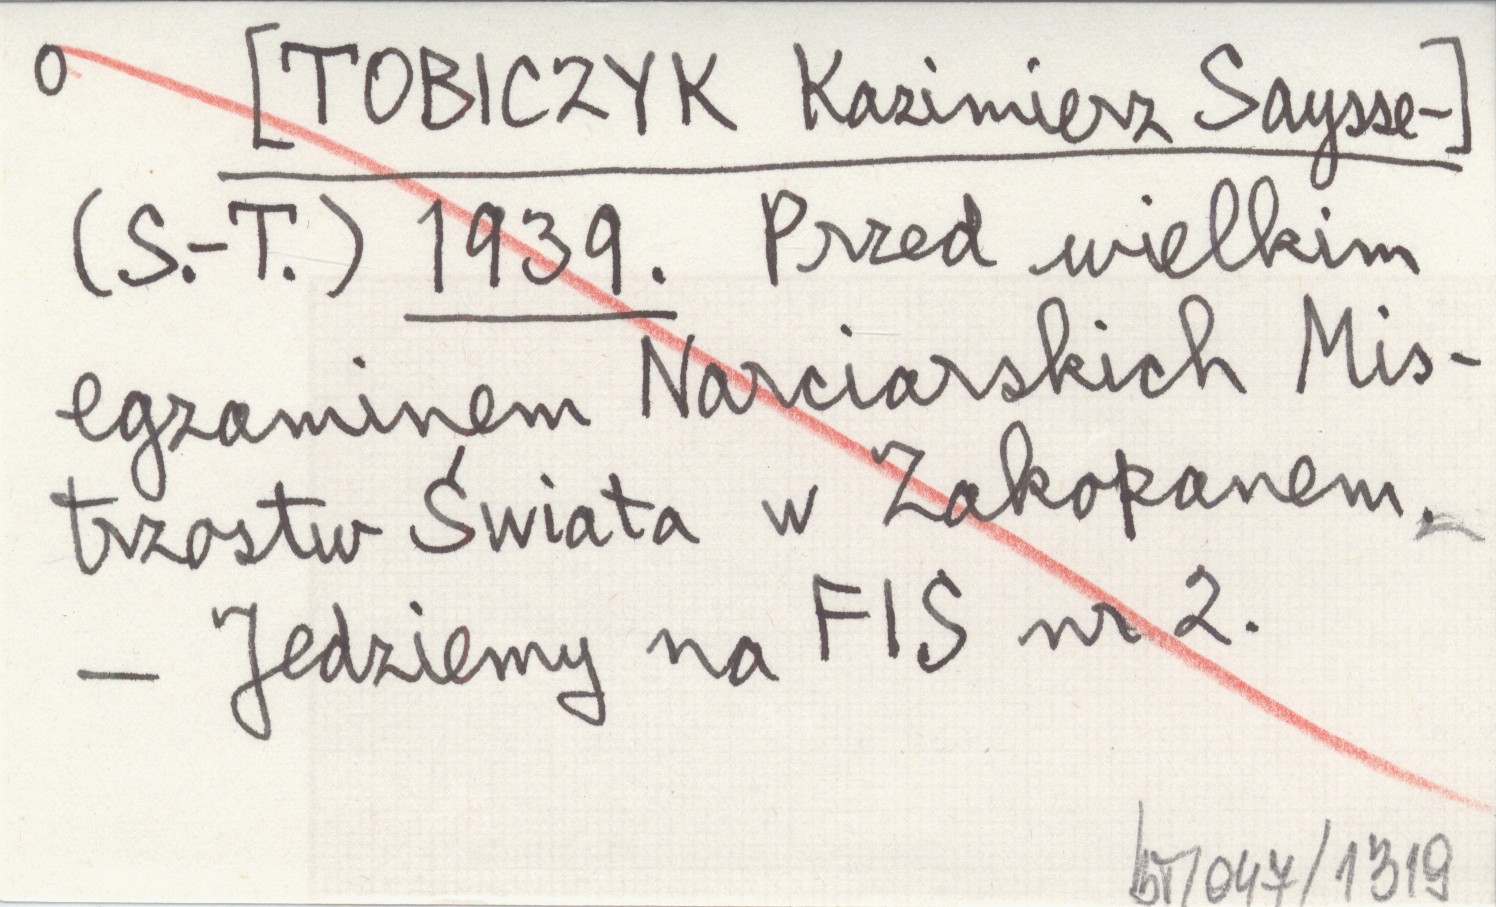 o [TOBICZYK Kazimierz Saysse-]
(S.-T.) 1939. Przed wielkim
egzaminem Narciarskich Mis-
trzostw Świata w Zakopanem.
— Jedziemy na FIS nr 2.
/047/1319